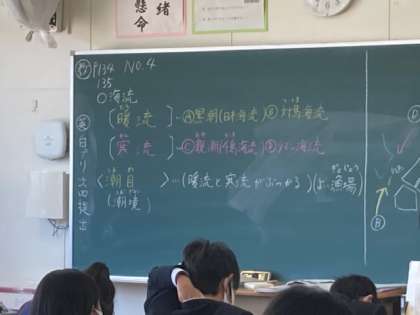 懸命
緒
P134 No.4
135
○海流
〔暖流〕…Ⓐ黒潮(日本海流)Ⓑ対馬海流
〔寒流〕…Ⓒ親潮(千島海流)Ⓓリマン海流
〈潮目〉…(暖流と寒流がぶつかる)
(潮境)
漁場
Ⓑ